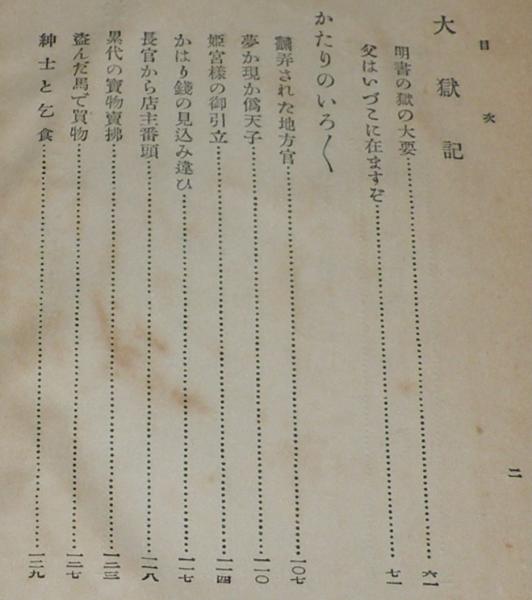 目次
大獄記
明書の獄の大要…六一
父はいづこに在ますぞ…七一
かたりのいろ〱
飜弄された地方官…一〇七
夢か現か僞天子…一一〇
姫宮様の御引立…一一四
かはり錢の見込み違ひ…一一七
長官から店主番頭…一一八
累代の寶物賣拂…一二三
盜んだ馬で買物…一二七
紳士と乞食…一二九
二